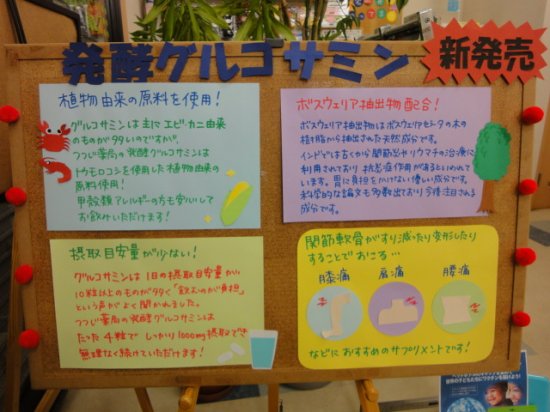 発酵グルコサミン
新発売
植物由来の原料を使用!
グルコサミンは主にエビ・カニ由来
のものが多いのですが、
つつじ薬局の発酵グルコサミンは
トウモロコシを使用した植物由来の
原料使用!
甲殻類アレルギーの方も安心して
お飲みいただけます!
ボスウェリア抽出物配合!
ボスウェリア抽出物はボスウェリアセラータの木の
樹脂から抽出された天然成分です。
インドでは古くから関節炎やリウマチの治療に
利用されており抗炎症作用があるといわれて
います。胃に負担をかけない優しい成分です。
科学的な論文も多数出ており今後注目される
成分です。
摂取目安量が少ない!
グルコサミンは1日の摂取目安量が
10粒以上のものが多く「飲むのが負担」
という声がよく聞かれました。
つつじ薬局の発酵グルコサミンは
たった4粒でしっかり1000mg摂取でき
無理なく続けていただけます!
関節軟骨がすり減ったり変形したり
することでおこる…
膝痛
肩痛
腰痛
などにおすすめのサプリメントです!